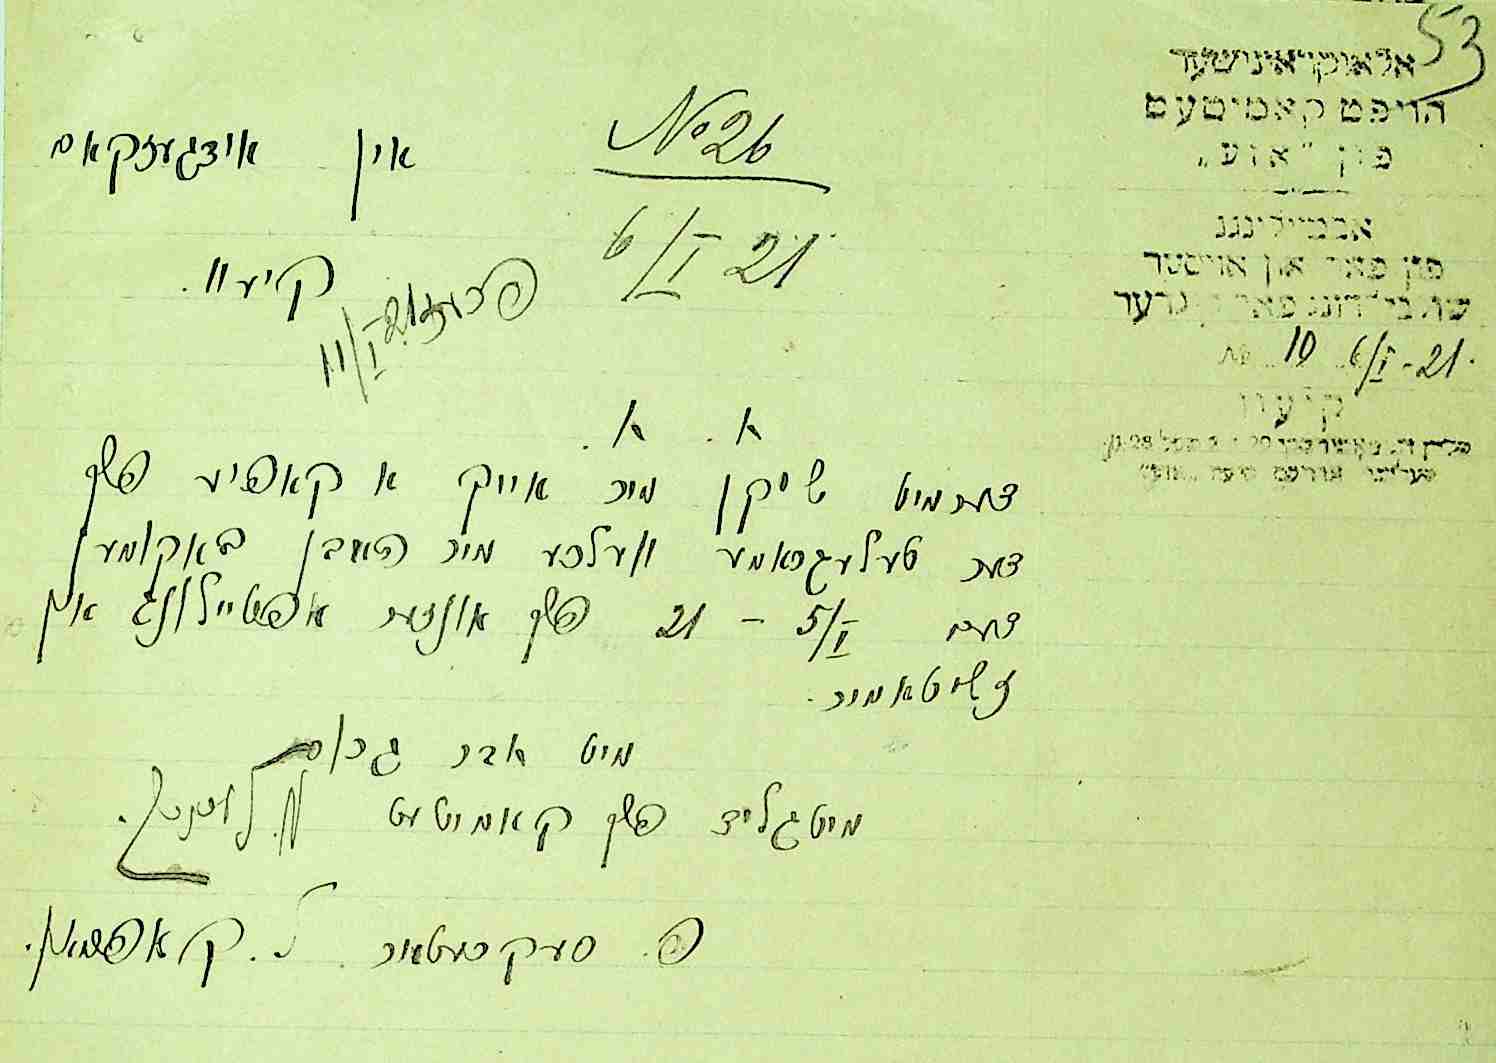 53
אלאוקראינישער
הויפט קאמיטעט
פון "אזע"
אבטיילונג
פון פאר און אויסער
שול בילדונג פאר קינדער
№ 10 6/I - 21.
קיעוו
№ 26
6/I 21
אין אידגעזקאם
קיעוו.
11/I 21
א. א.
דערמיט שיקן מיר אייך א קאפיע פון
דער טעלעגראמע וועלכע מיר האבן באקומען
דעם 5/I - 21 פון אונזער אפטיילונג אין
זשיטאמיר.
מיט אבר גרוס
מיטגליד פון קאמיטעט
פ. סעקרעטאר ל. קאפמאן.